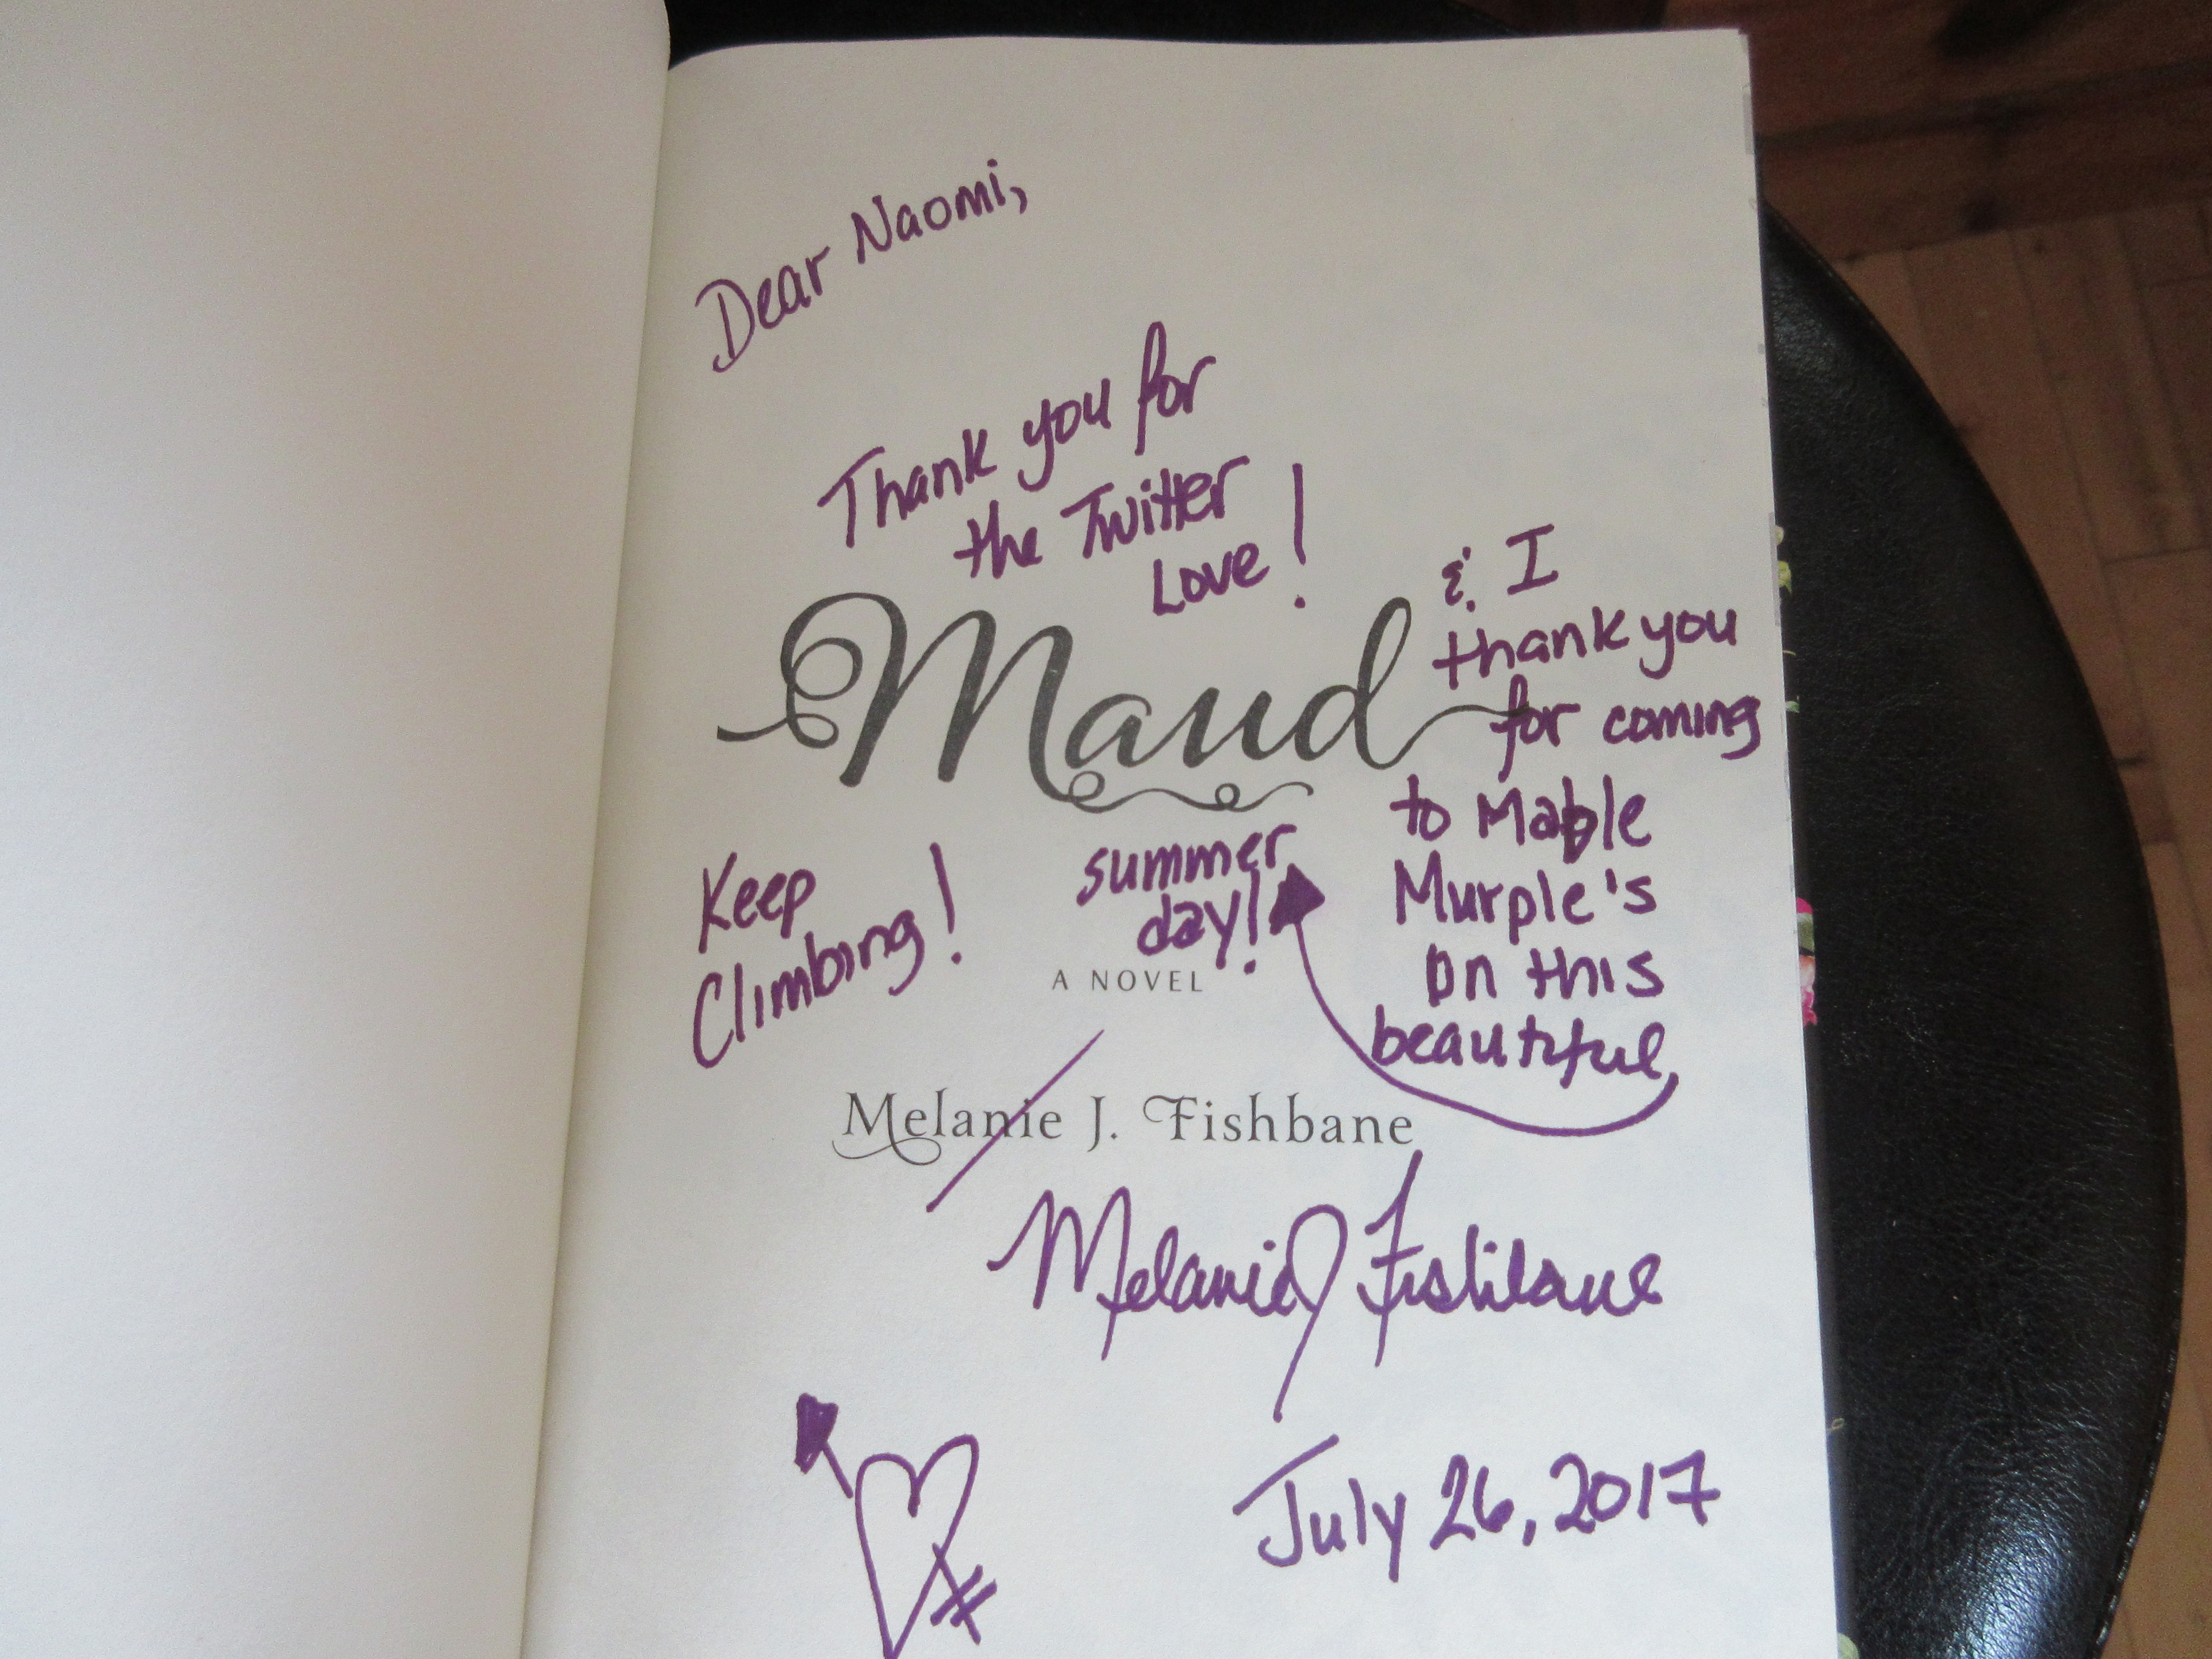 Dear Naomi,
Thank you for
the Twitter
Love!
& I
thank you
for coming
to Mable
Murple's
on this
beautiful
summer
day!
Maud
Keep
Climbing!
A NOVEL
Melanie J. Fishbane
Melanie J Fishbane
July 26, 2017